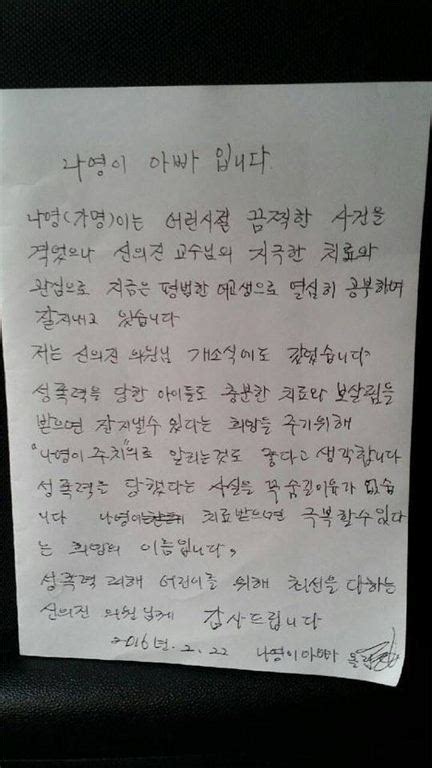 나영이 아빠 입니다
나영(가명)이는 어린시절 끔찍한 사건을
격었으나 신의진 교수님의 지극한 치료와
관심으로 지금은 평범한 여고생으로 열심히 공부하며
잘지내고 있습니다
저는 신의진 의원님 개소식에도 갔었습니다.
성폭력을 당한 아이들도 충분한 치료와 보살핌을
받으면 잘지낼수 있다는 희망을 주기위해
"나영이 주치"의로 알리는것도 좋다고 생각합니다
성폭력을 당했다는 사실을 꼭 숨길이유가 없습
니다 나영이 치료받으면 극복할수있다
는 희망의 이름입니다,
성폭력 피해 어린이를 위해 최선을 다하는
신의진 의원님께 감사드립니다
2016년. 2. 22 나영이아빠 올림